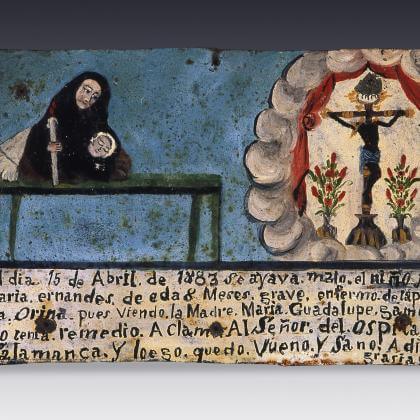 l dia. 15 de Abril. de 1883 se ayava. malo. el niño.
aria. ernandes. de eda 8 Meses. grave, enfermo. de la
a. Orina. pues Viendo. la Madre. Maria. Guadalupe. gam
o tenia. remedio. Aclama. Al Señor. del ospi
alamanca. Y loego. quedo. Vueno. Y Sano. A di
grasia